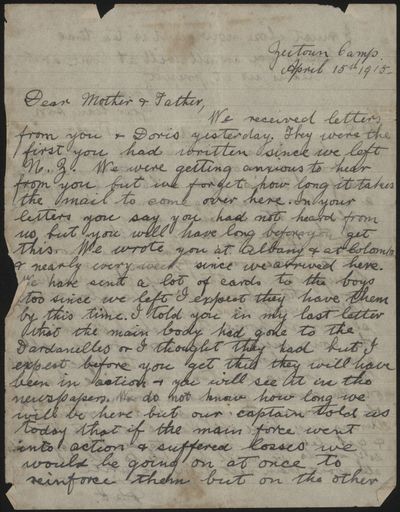 Zeitoun Camp.
April 15th 1915.
Dear Mother & Father,
We received letters
from you & Doris yesterday. They were the
first you had written since we left
N.Z. We were getting anxious to hear
from you but we forget how long it takes
the mail to come over here. In your
letters you say you had not heard from
us, but you will have long before you get
this. We wrote you at Albany & at Colombo
& nearly every week since we arrived here.
We have sent a lot of cards to the boys
too since we left I expect they have them
by this time. I told you in my last letter
that the main body had gone to the
Dardanelles or I thought they had but I
expect before you get this they will have
been in action & you will see it in the
newspapers. We do not know how long we
will be here but our captain told us
today that if the main force went
into action & suffered losses we
would be going on at once to
reinforce them but on the other